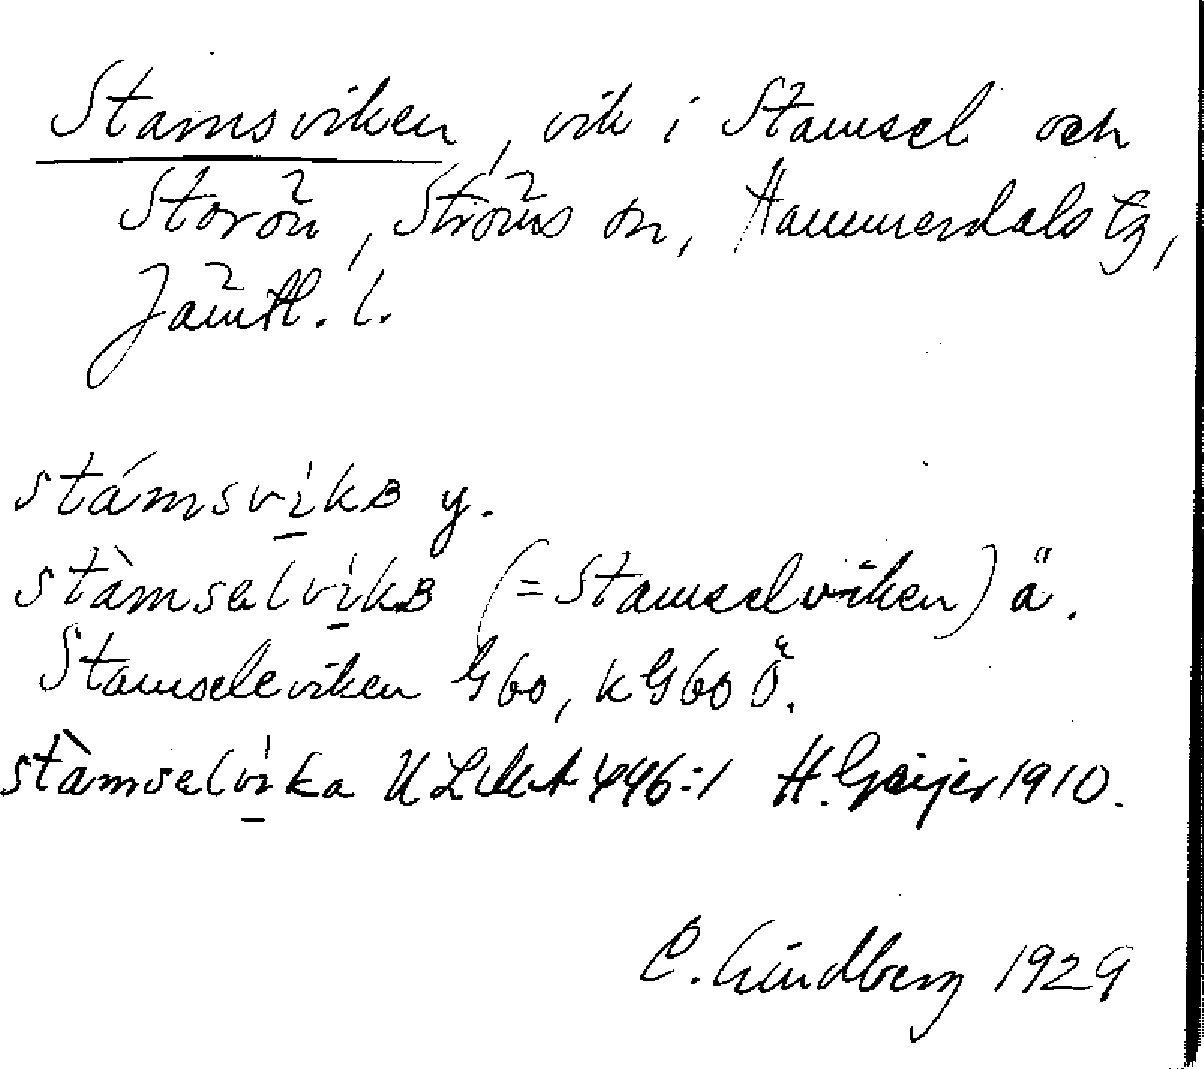 Stamsviken, vik i Stamsel och
Storön, Ströms sn, Hammerdals tg,
Jämtl. l.
stámsvi̠kɞ y.
stàmsəlvi̠kɞ (= Stamselviken) ä.
Stamseleviken G60, KG60 Ö.
stàmsəlvi̠ka ULMA 446:1 H. Geijer 1910.
C. Lindberg 1929